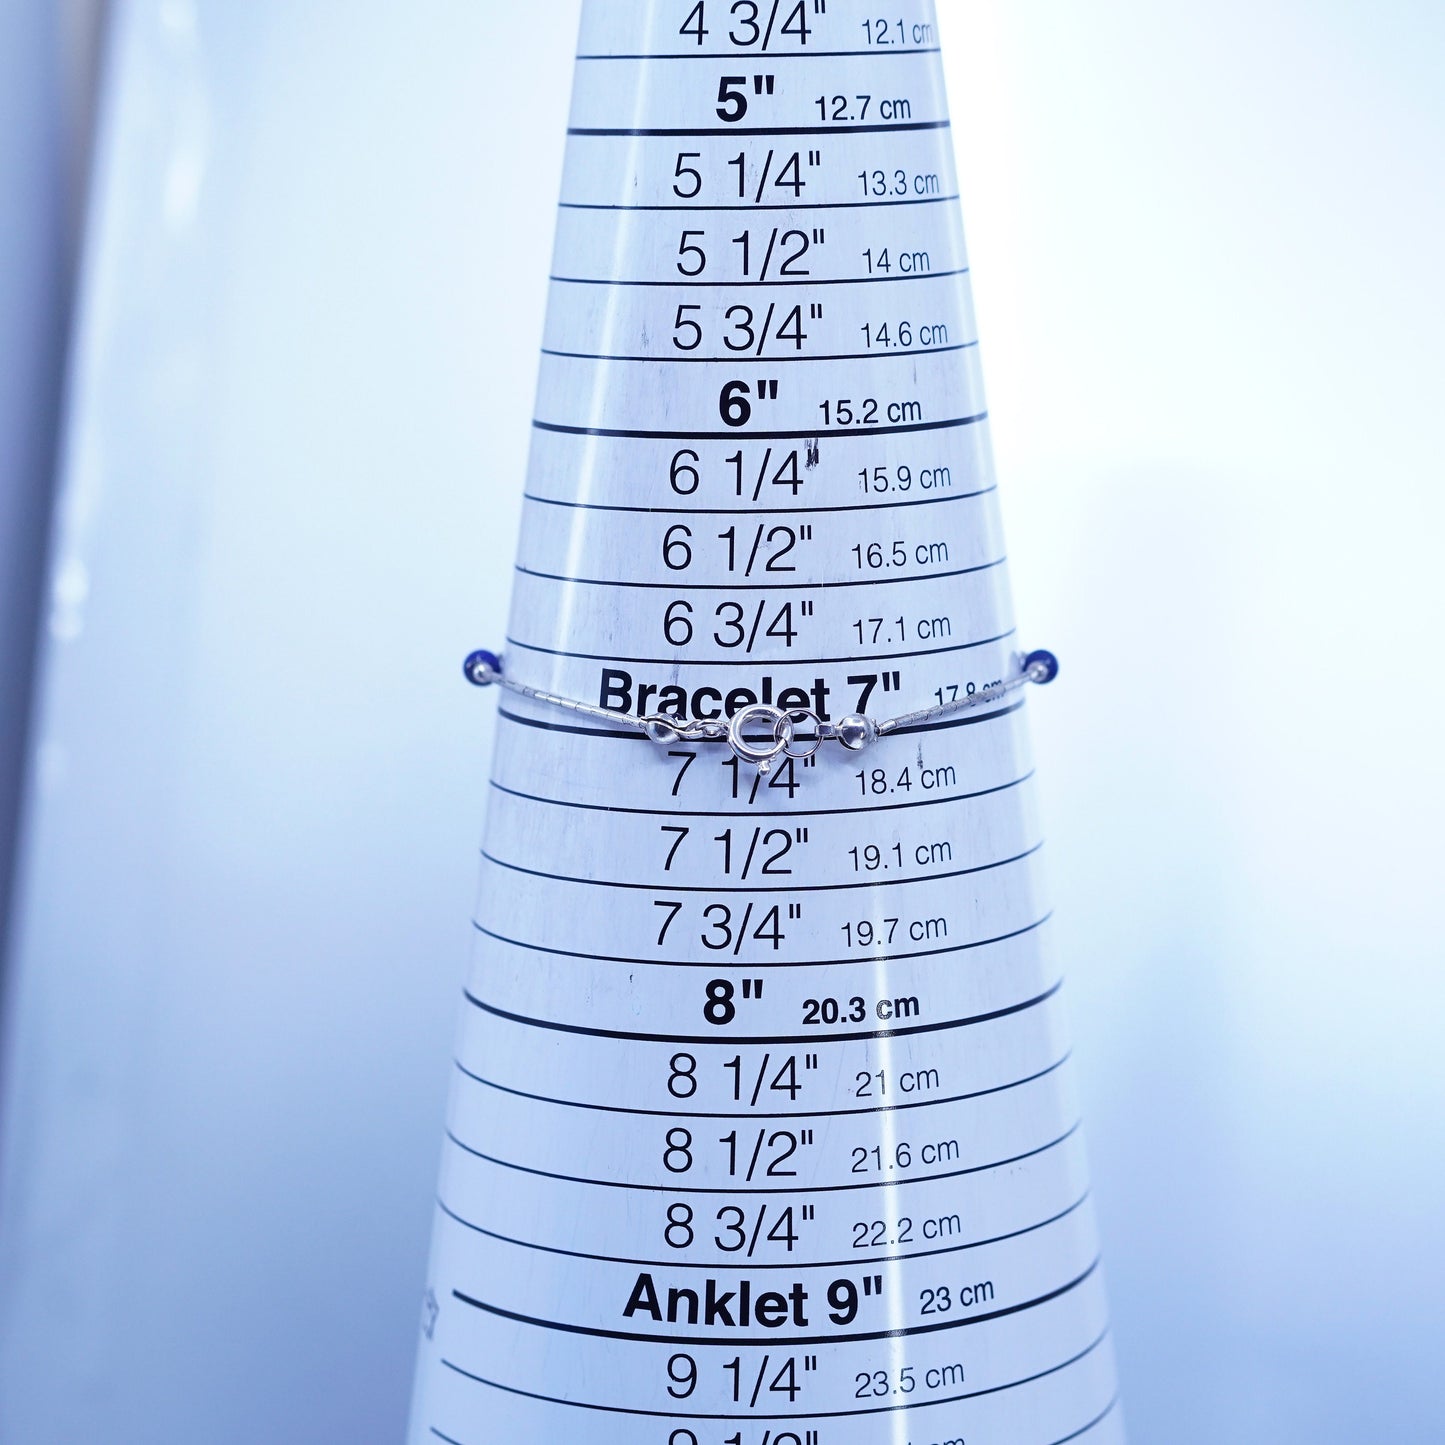 4 3/4" 12.1 cm
5" 12.7 cm
5 1/4" 13.3 cm
5 1/2" 14 cm
5 3/4" 14.6 cm
6" 15.2 cm
6 1/4" 15.9 cm
6 1/2" 16.5 cm
6 3/4" 17.1 cm
Bracelet 7" 17.8 cm
7 1/4" 18.4 cm
7 1/2" 19.1 cm
7 3/4" 19.7 cm
8" 20.3 cm
8 1/4" 21 cm
8 1/2" 21.6 cm
8 3/4" 22.2 cm
Anklet 9" 23 cm
9 1/4" 23.5 cm
9 1/2" cm